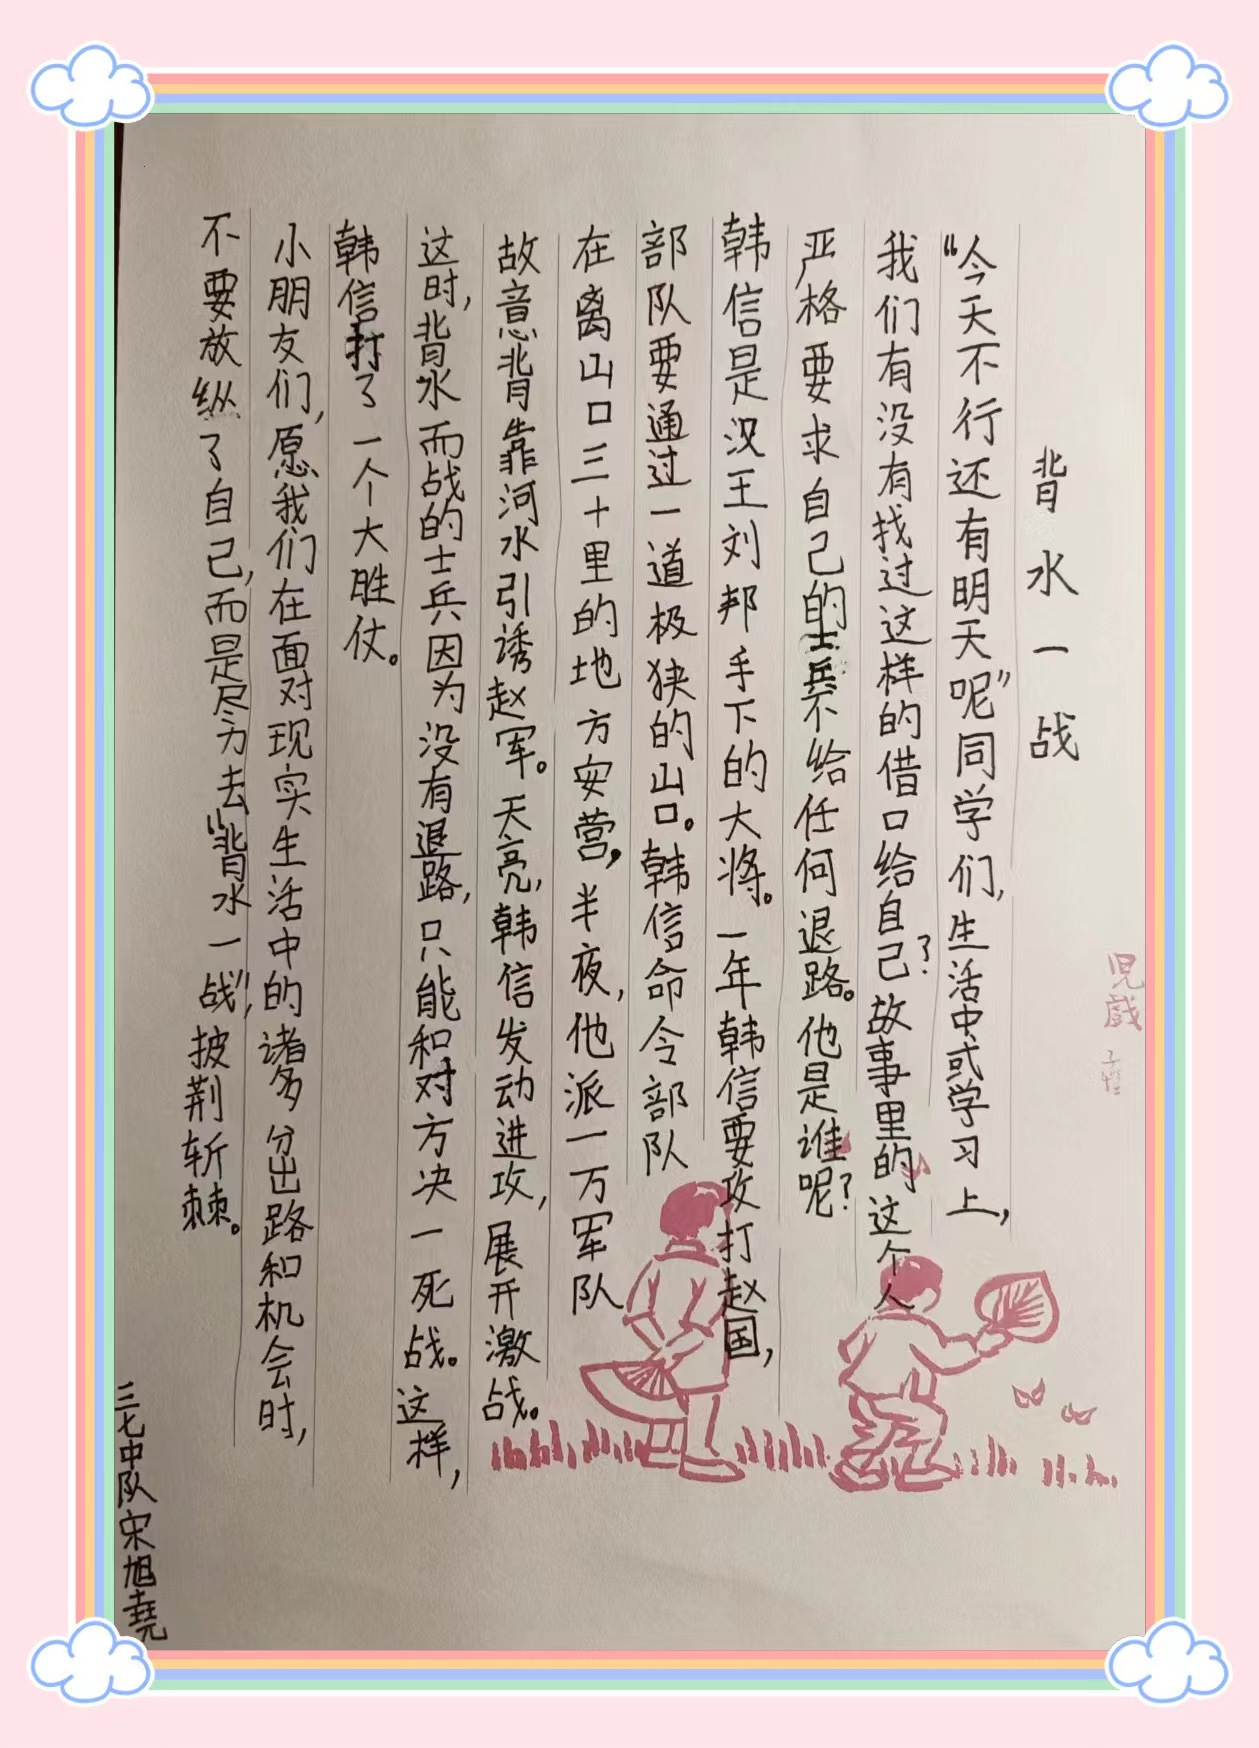 背水一战
“今天不行还有明天呢”同学们,生活中或学习上,
我们有没有找过这样的借口给自己?故事里的这个人
严格要求自己的士兵不给任何退路。他是谁呢?
韩信是汉王刘邦手下的大将。一年韩信要攻打赵国,
部队要通过一道极狭的山口。韩信命令部队
在离山口三十里的地方安营,半夜,他派一万军队
故意背靠河水引诱赵军。天亮,韩信发动进攻,展开激战。
这时,背水而战的士兵因为没有退路,只能和对方决一死战。这样,
韩信打了一个大胜仗。
小朋友们,愿我们在面对现实生活中的诸多岔路和机会时,
不要放纵了自己,而是尽力去“背水一战”,披荆斩棘。
三七中队宋旭堯
児戯